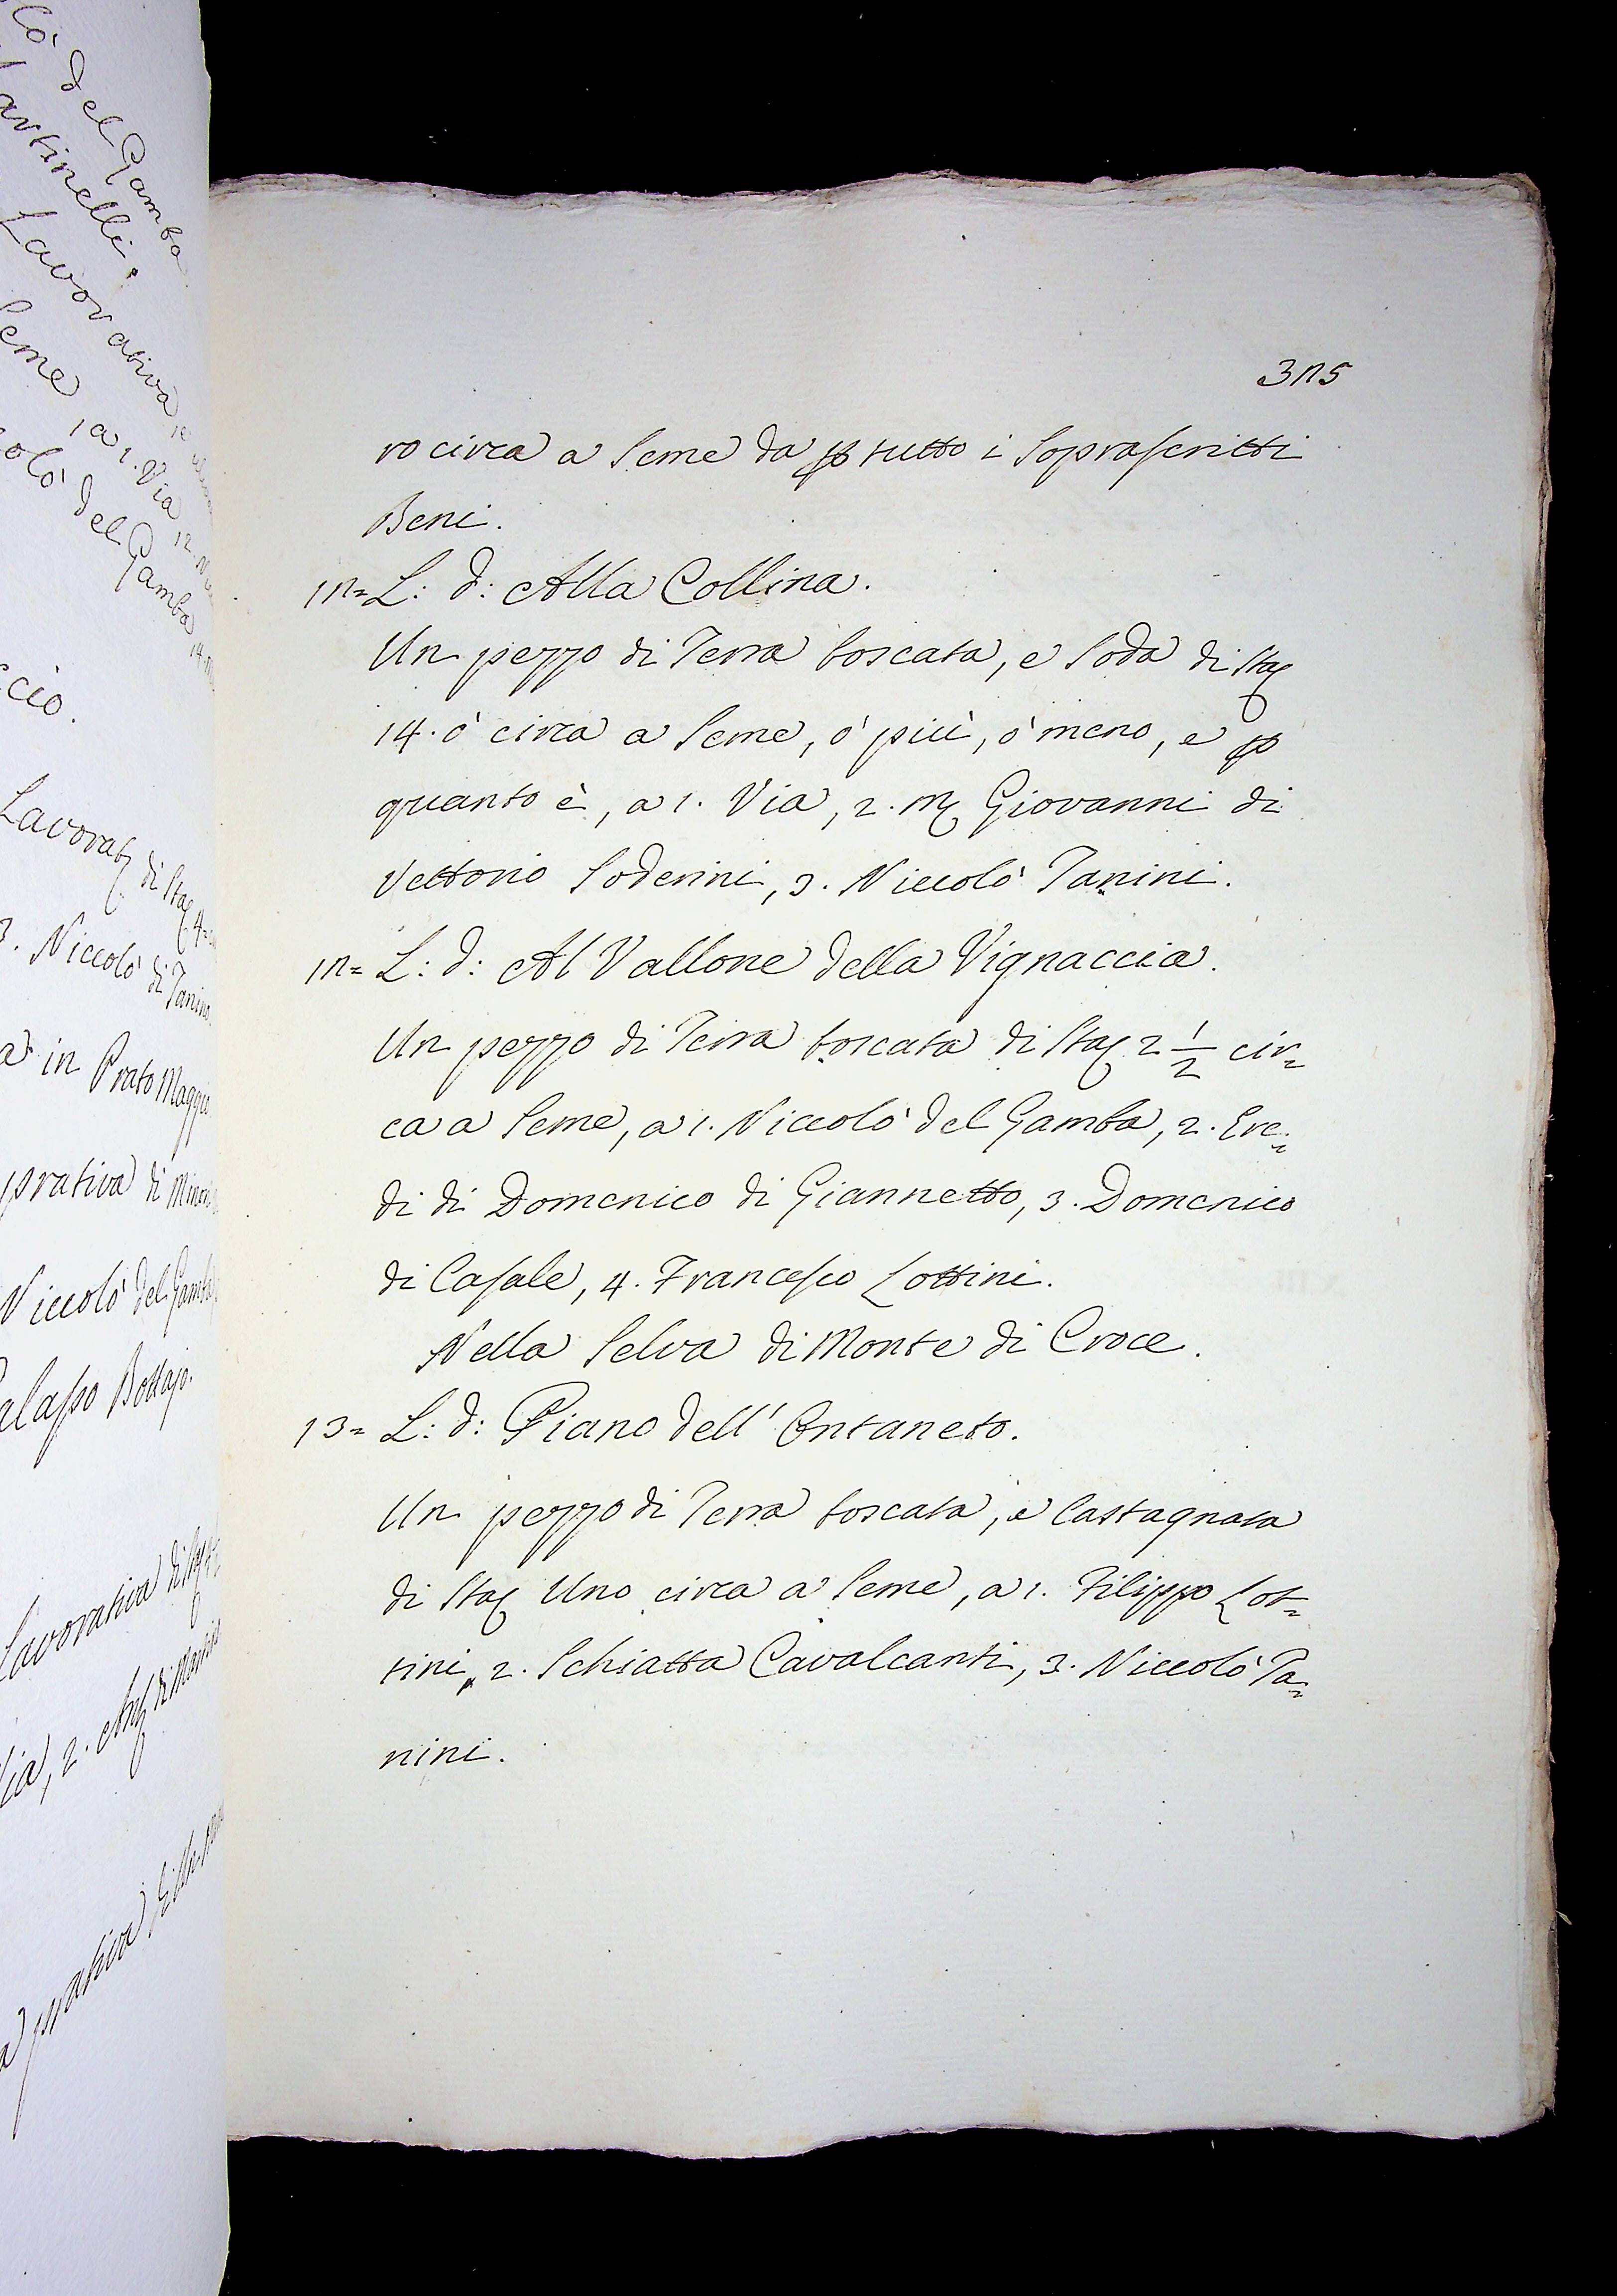 lò del Gamba
artinelli.
Lavorativa
Seme
a 1. Via
colò del Gamba
ccio.
Lavorat di Sta
3. Niccolò di Tanino
in Prato Maggio
prativa di
Niccolò del Gamba
Bottajo.
Lavorativa di
2.
prativa
325
ro circa a Seme da p tutto i Soprascritti
Beni.
12= L: d: Alla Collina.
Un pezzo di Terra boscata, e Soda di Sta
14. ò circa a Seme, ò più, ò meno, e p
quanto è, a 1. Via, 2. M Giovanni di
Vettorio Soderini, 3. Niccolò Tanini.
12= L: d: Al Vallone della Vignaccia.
Un pezzo di Terra boscata di Sta 2 1/2 cir=
ca a Seme, a 1. Niccolò del Gamba, 2. Ere=
di di Domenico di Giannetto, 3. Domenico
di Casale, 4. Francesco Lottini.
Nella Selva di Monte di Croce.
13= L: d: Piano dell' Ontaneto.
Un pezzo di Terra boscata, e Castagnata
di Sta Uno circa a Seme, a 1. Filippo Lot=
tini, 2. Schiatta Cavalcanti, 3. Niccolò Ta=
nini.